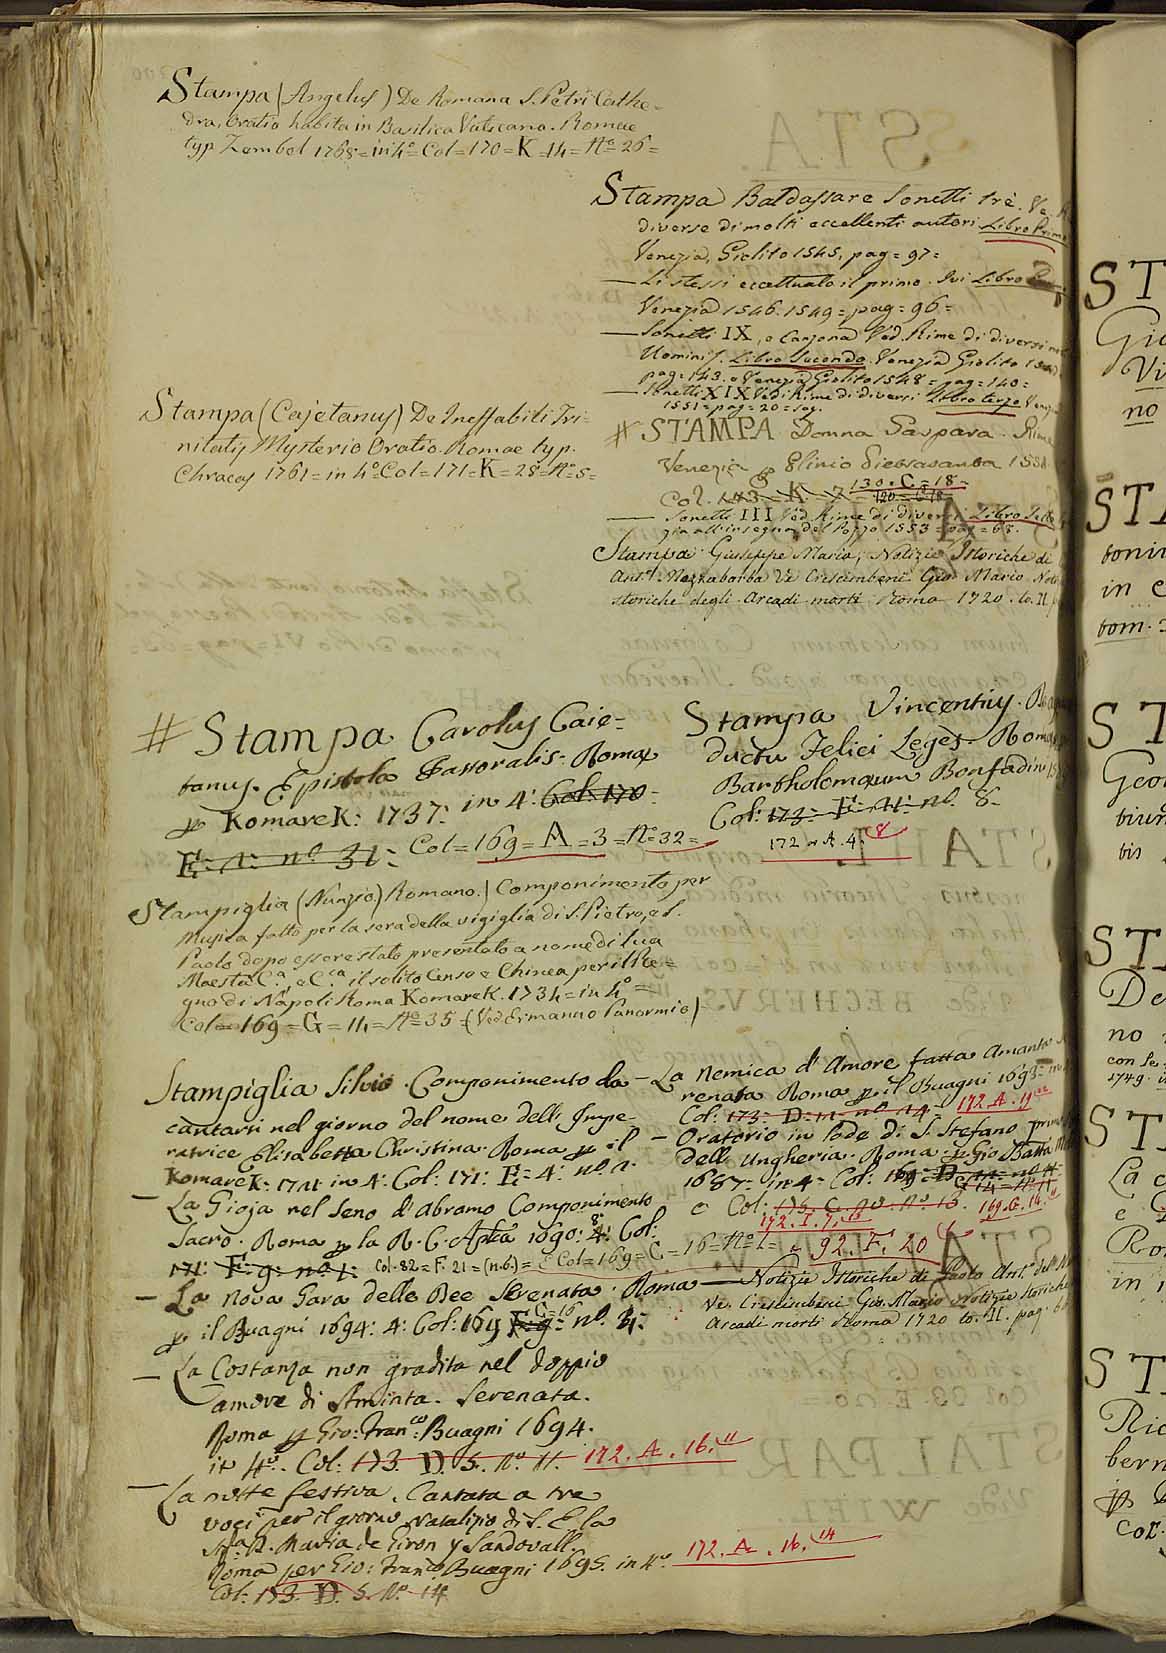 Stampa (Angelus) De Romana S. Petri Cathe-
dra, Oratio habita in Basilica Vaticana. Romae
typ. Zembel 1768 = in 4º = Col = 170 = K = 14 = Nº = 26 =
Stampa Baldassare Sonetti trè. Ve.
diverse di molti eccellenti autori Libro Primo
Venezia, Giolito 1545, pag = 97 =
— Li stessi eccettuato il primo. Ivi Libro
Venezia 1546. 1549 = pag = 96 =
— Sonetti IX, e Canzona Ved. Rime di diversi
Uomini S. Libro Secondo. Venezia Giolito
pag = 143. e Venezia Giolito 1548 = pag = 140 =
— Sonetti XIX Vedi Rime di diversi Libro terzo Venezia
1551 = pag = 20 = seg.
Stampa (Cajetanus) De Ineffabili Tri-
nitatis Mysterio Oratio. Romae typ.
Chracas 1761 = in 4º = Col = 171 = K = 28 = Nº = 5 =
# STAMPA Donna Gaspara. Rime
Venezia p Plinio Pietrasanta 1554
Col. 143 = K. 7 = 130 = C = 18 =
120 = C 18 =
— Sonetti III Ved. Rime di diversi Libro Sesto
zia all'insegna del Pozzo 1553 = pag = 63.
Stampa Giuseppe Maria, Notizie Istoriche di
Ant. Mezzabarba Ve Crescimbeni Gio. Mario Noti
storiche degli Arcadi morti Roma 1720. to. II.
# Stampa Carolus Caie-
tanus. Epistola Pastoralis. Romæ
p Komarek: 1737: in 4: Col: 170:
F: 1: nº 31: Col = 169 = A = 3 = Nº = 32 =
Stampa Vincentius.
ductu Felici Leges. Romæ
Bartholomæum Bonfadin
Col: 173: F: 11: nº 8.
172 A. 4. 8
Stampiglia (Nunzio) Romano.) Componimento per
Musica fatto per la sera della vigiglia di S. Pietro, e S.
Paolo dopo essere stato presentato a nome di Sua
Maestà C.a, e C.ca il solito Censo e Chinea per il Re =
gno di Napoli Roma Komarek. 1734 = in 4º =
Col = 169 = G = 14 = Nº 35 = (Ved. Ermanno Panormio)
Stampiglia Silvio. Componimento da
cantarsi nel giorno del nome dell' Impe-
ratrice Elisabetta Christina. Roma p il
Komarek: 1711 in 4: Col: 171: F: 4: nº 1.
— La Gioja nel Seno d'Abramo Componimento
Sacro. Roma p la R. C. Apl'ca 1690: 4: Col:
8º
171: F: 9: nº 1: Col. 82 = F. 21 = (n.6.) = Col = 169 = C = 16 = Nº 1 =
— La Nova Gara delle Dee Serenata. Roma
p il Buagni 1694: 4: Col: 169 F: 9: nº 3:
C = 16
— La Costanza non gradita nel doppio
amore di Aminta. Serenata.
Roma p Gio: Fran.co Buagni 1694.
in 4º. Col: 173. D. 5. Nº. 11. 172. A. 16. 11
— La notte festiva. Cantata a tre
voci per il giorno Natalizio di S. E. la
Sig.a D. Maria de Giron y Sandovall.
Roma per Gio: Fran.co Buagni 1695. in 4º. 172. A. 16. 14
Col: 173. D. 5. Nº. 14
— La Nemica d'Amore fatta Amante
renata Roma p il Buagni 1693: in
Col: 173: D: 11: nº 14: 172. A. 19
— Oratorio in lode di S. Stefano primo
dell' Ungheria. Roma p Gio Batta
1687: in 4: Col: 169
e Col: 175. C. Nº 13. 169. G. 14. 11
172. I. 7. 13
e 92. F. 20
— Notizie Istoriche di Paolo Ant.º del
Ve. Crescimbeni Gio. Mario Notizie Storiche
Arcadi morti Roma 1720 to. II. pag.